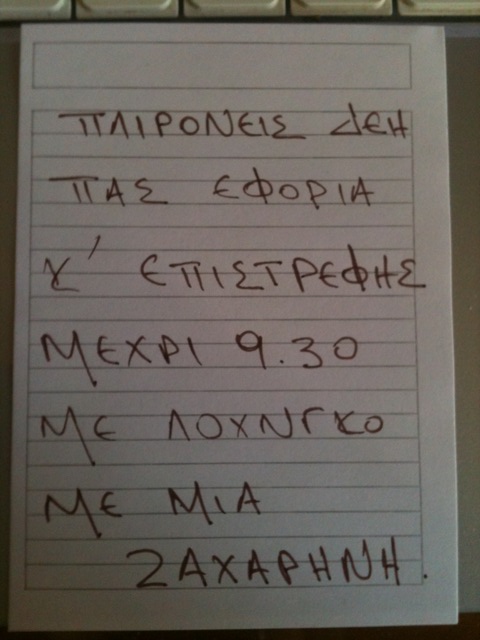 ΠΛΙΡΟΝΕΙΣ ΔΕΗ
ΠΑΣ ΕΦΟΡΙΑ
Κ' ΕΠΙΣΤΡΕΦΗΣ
ΜΕΧΡΙ 9.30
ΜΕ ΛΟΧΝΓΚΟ
ΜΕ ΜΙΑ
ΖΑΧΑΡΗΝΗ.